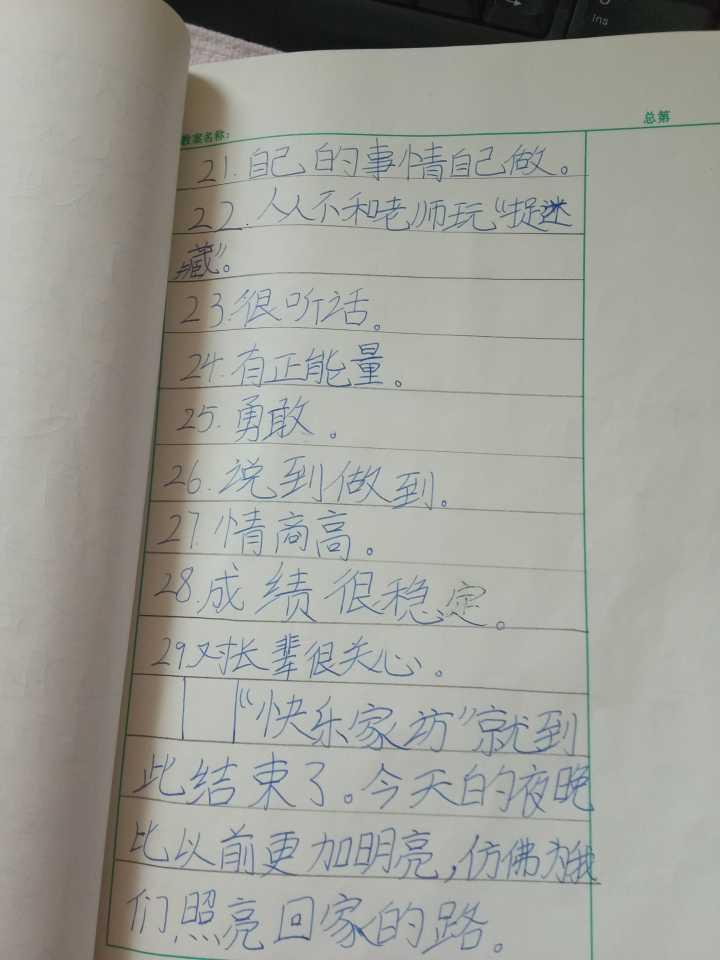 Ins
教案名称:
总第
21.自己的事情自己做。
22.从不和老师玩“捉迷
藏”。
23.很听话。
24.有正能量。
25.勇敢。
26.说到做到。
27.情商高。
28.成绩很稳定。
29.对长辈很关心。
“快乐家访”就到
此结束了。今天的夜晚
比以前更加明亮,仿佛为我
们照亮回家的路。